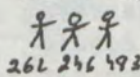 262 246 493